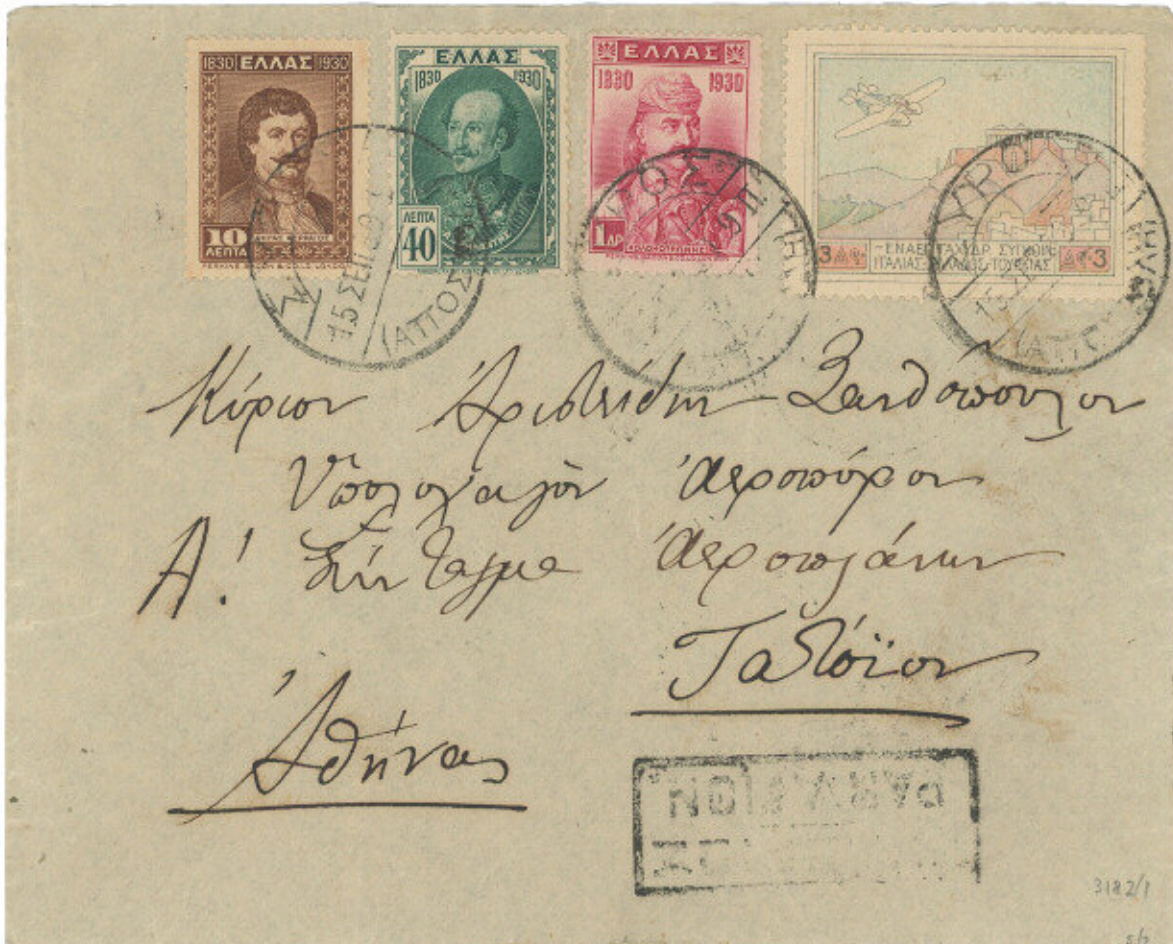 1830 ΕΛΛΑΣ 1930
10
ΛΕΠΤΑ
ΕΛΛΑΣ
1830 1930
ΛΕΠΤΑ
40
ΕΛΛΑΣ
1830 1930
1 ΔΡ
ΚΟΛΟΚΟΤΡΩΝΗΣ
3 ΔΡ
ΕΝΑΕΡ. ΤΑΧΥΔΡ.
ΙΤΑΛΙΑΣ ΤΟΥΡΚΙΑΣ
ΔΡ 3
15 ΣΕΠ
Κύριον Ἀριστείδην Ξανθόπουλον
Ὑπολοχαγὸν ἀεροπόρον
Α! Σύνταγμα ἀεροπλάνων
Τατόϊον
Ἀθήνας
PAR AVION
3182/1